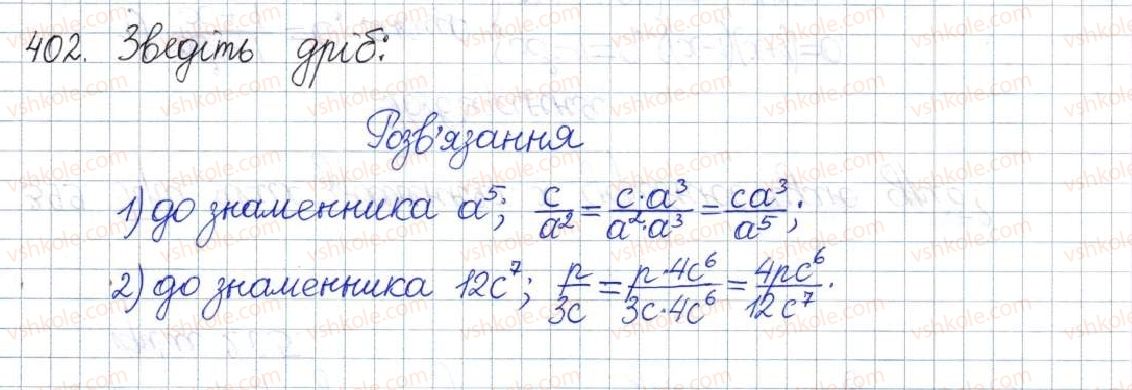 402. Зведіть дріб:
Розв'язання
1) до знаменника a⁵; c/a² = c·a³/a²·a³ = ca³/a⁵;
2) до знаменника 12c⁷; p/3c = p·4c⁶/3c·4c⁶ = 4pc⁶/12c⁷.